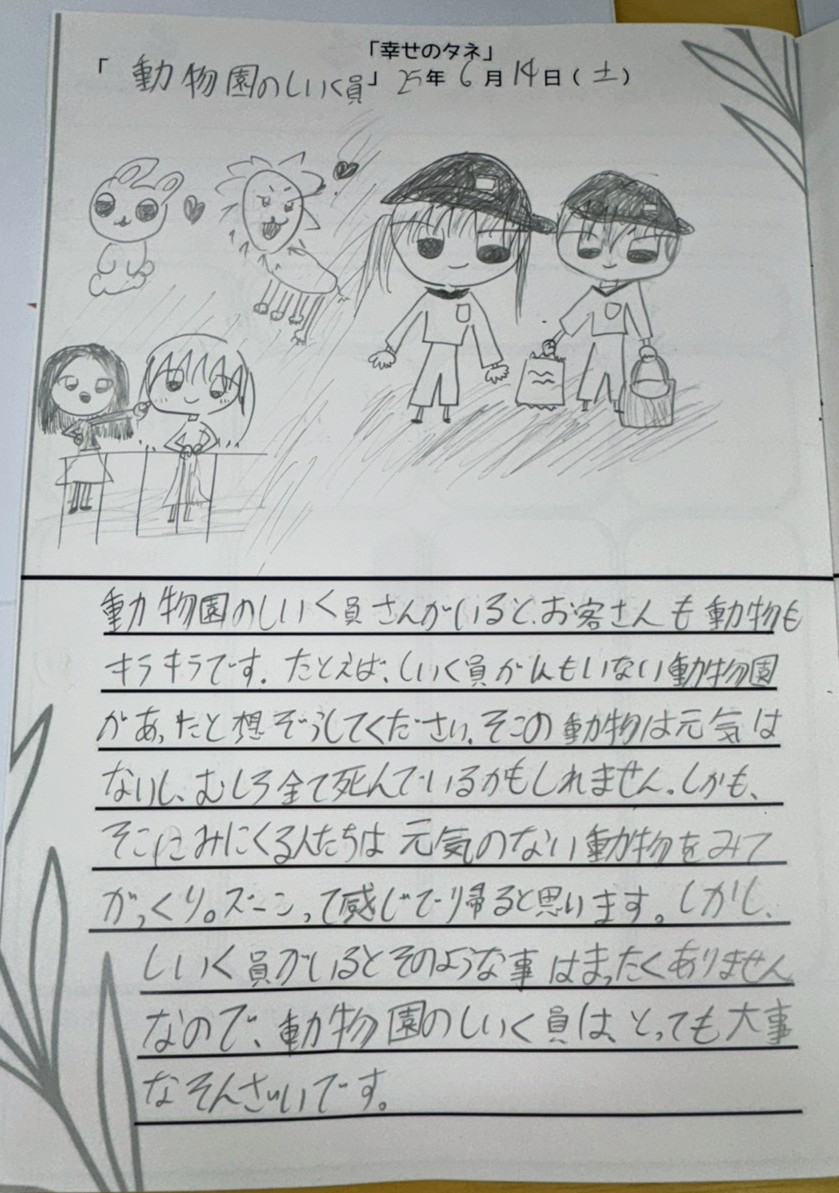 「幸せのタネ」
「動物園のしいく員」25年6月14日(土)
動物園のしいく員さんがいると、お客さんも動物も
キラキラです。たとえば、しいく員が1人もいない動物園
があったと想ぞうしてください。そこの動物は元気は
ないし、むしろ全て死んでいるかもしれません。しかも、
そこにみにくる人たちは元気のない動物をみて
がっくり。ズーンって感じで帰ると思います。しかし、
しいく員がいるとそのような事はまったくありません
なので、動物園のしいく員は、とっても大事
なそんざいです。